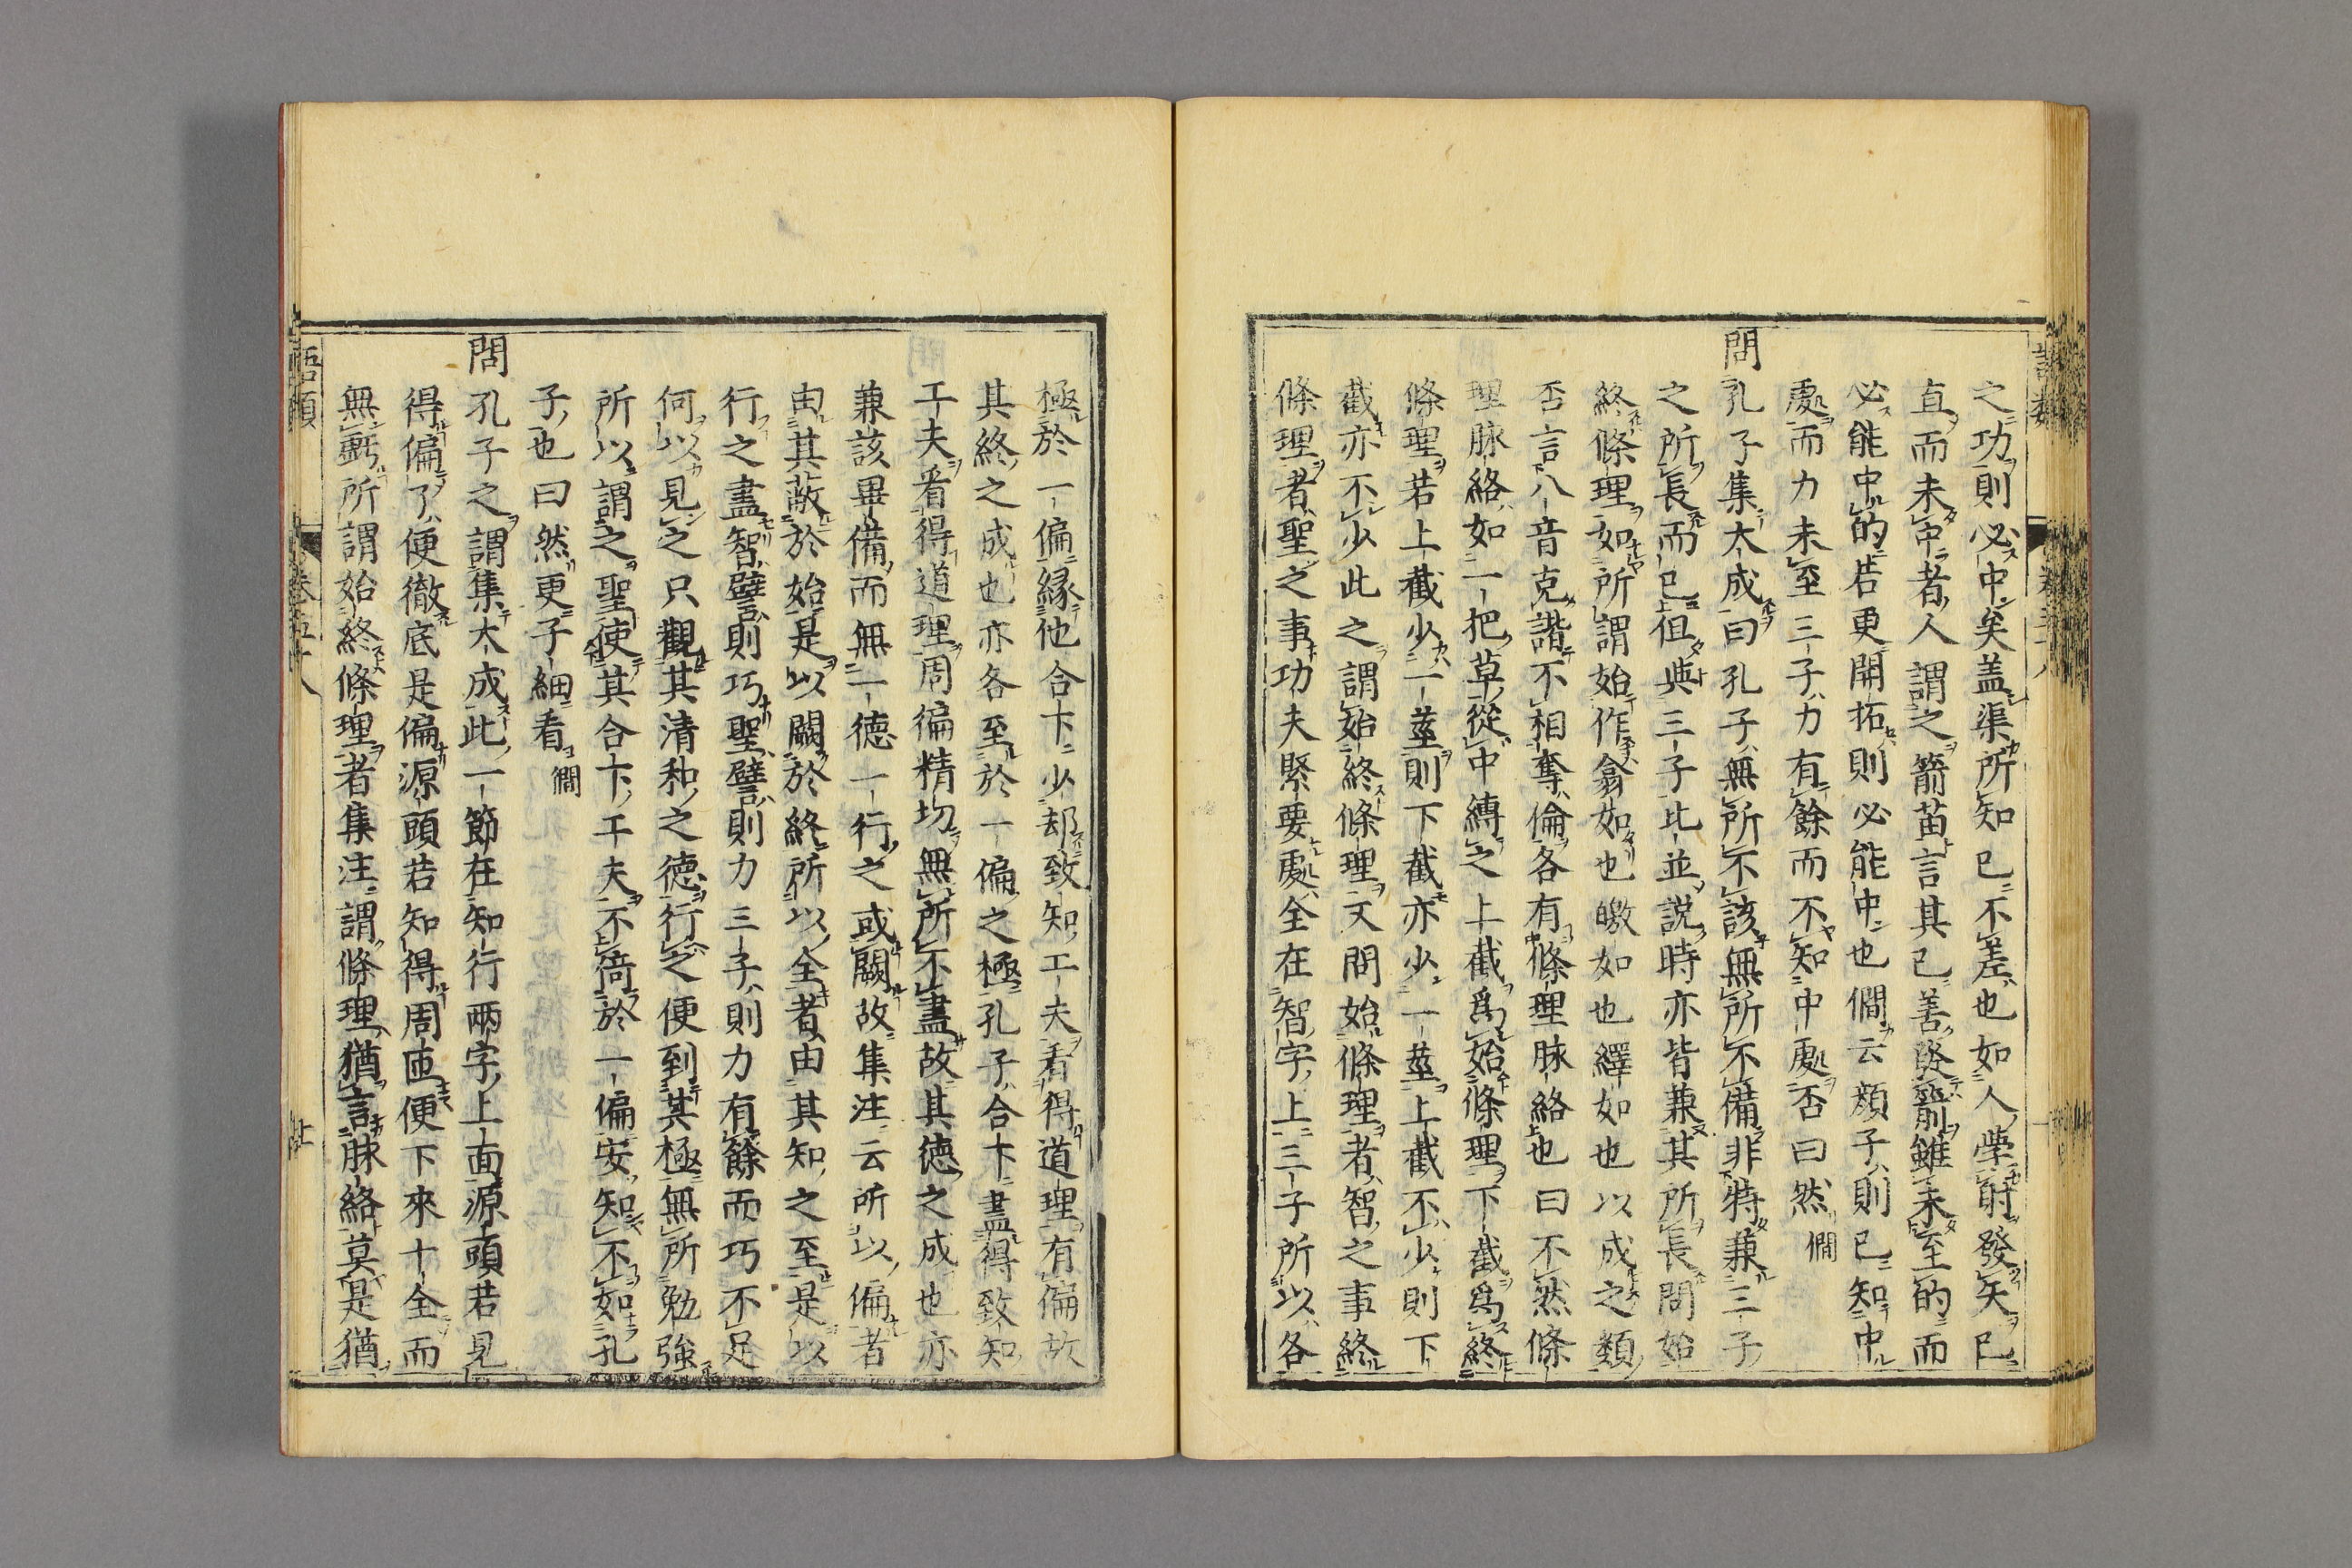 之功則必中矣盖渠所知已不差也如人學射發矢已
直而未中者人謂之箭苗言其已善發箭雖未至的而
必能中的若更開拓則必能中也僩云顏子則已知中
處而力未至三子力有餘而不知中處否曰然僩
問孔子集大成曰孔子無所不該無所不備非特兼三子
之所長而已但與三子比並說時亦皆兼其所長問始
終條理如所謂始作翕如也皦如也繹如也以成之類
否言八音克諧不相奪倫各有條理脉絡也曰不然條
理脉絡如一把草從中縛之上截爲始條理下截爲終
條理若上截少一莖則下截亦少一莖上截不少則下
截亦不少此之謂始終條理又問始條理者智之事終
條理者聖之事功夫緊要處全在智字上三子所以各
極於一偏縁他合卞少却致知工夫看得道理有偏故
其終之成也亦各至於一偏之極孔子合卞盡得致知
工夫看得道理周徧精切無所不盡故其德之成也亦
兼該畢備而無一德一行之或闕故集注云所以偏者
由其蔽於始是以闕於終所以全者由其知之至是以
行之盡智譬則巧聖譬則力三子則力有餘而巧不足
何以見之只觀其清和之德行之便到其極無所勉強
所以謂之聖使其合卞工夫不倚於一偏安知不如孔
子也曰然更子細看僩
問孔子之謂集大成此一節在知行兩字上面源頭若見
得偏了便徹底是偏源頭若知得周匝便下來十全而
無虧所謂始終條理者集注謂條理猶言脉絡莫是猶
語類
卷五十八